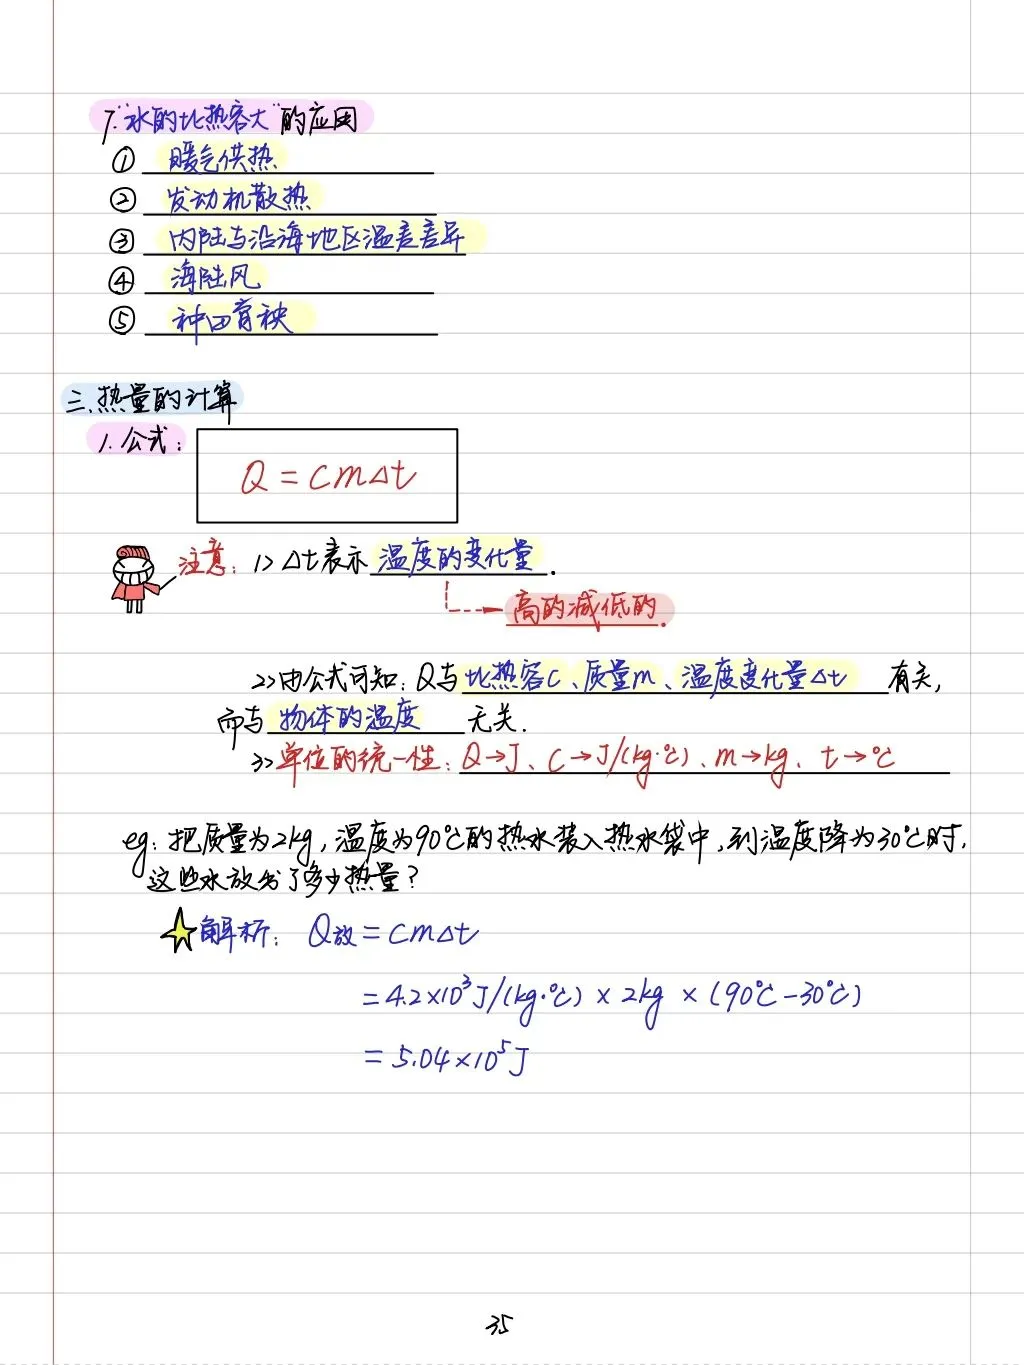 7."水的比热容大"的应用
① 暖气供热
② 发动机散热
③ 内陆与沿海地区温差差异
④ 海陆风
⑤ 种田育秧
三、热量的计算
1. 公式:
Q = cm△t
注意: 1> △t表示 温度的变化量.
高的减低的.
2> 由公式可知: Q与 比热容c、质量m、温度变化量△t 有关,
而与 物体的温度 无关.
3> 单位的统一性: Q→J、C→J/(kg·℃)、m→kg、t→℃
eg: 把质量为2kg,温度为90℃的热水装入热水袋中,到温度降为30℃时,
这些水放出了多少热量?
解析: Q放 = cm△t
= 4.2×10³J/(kg·℃) × 2kg × (90℃-30℃)
= 5.04×10⁵J
35